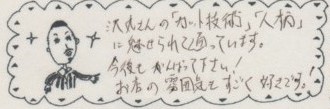 沢氏さんの「カット技術」「人柄」
に魅せられて通っています。
今後もがんばって下さい！
お店の雰囲気もすごく好きです。